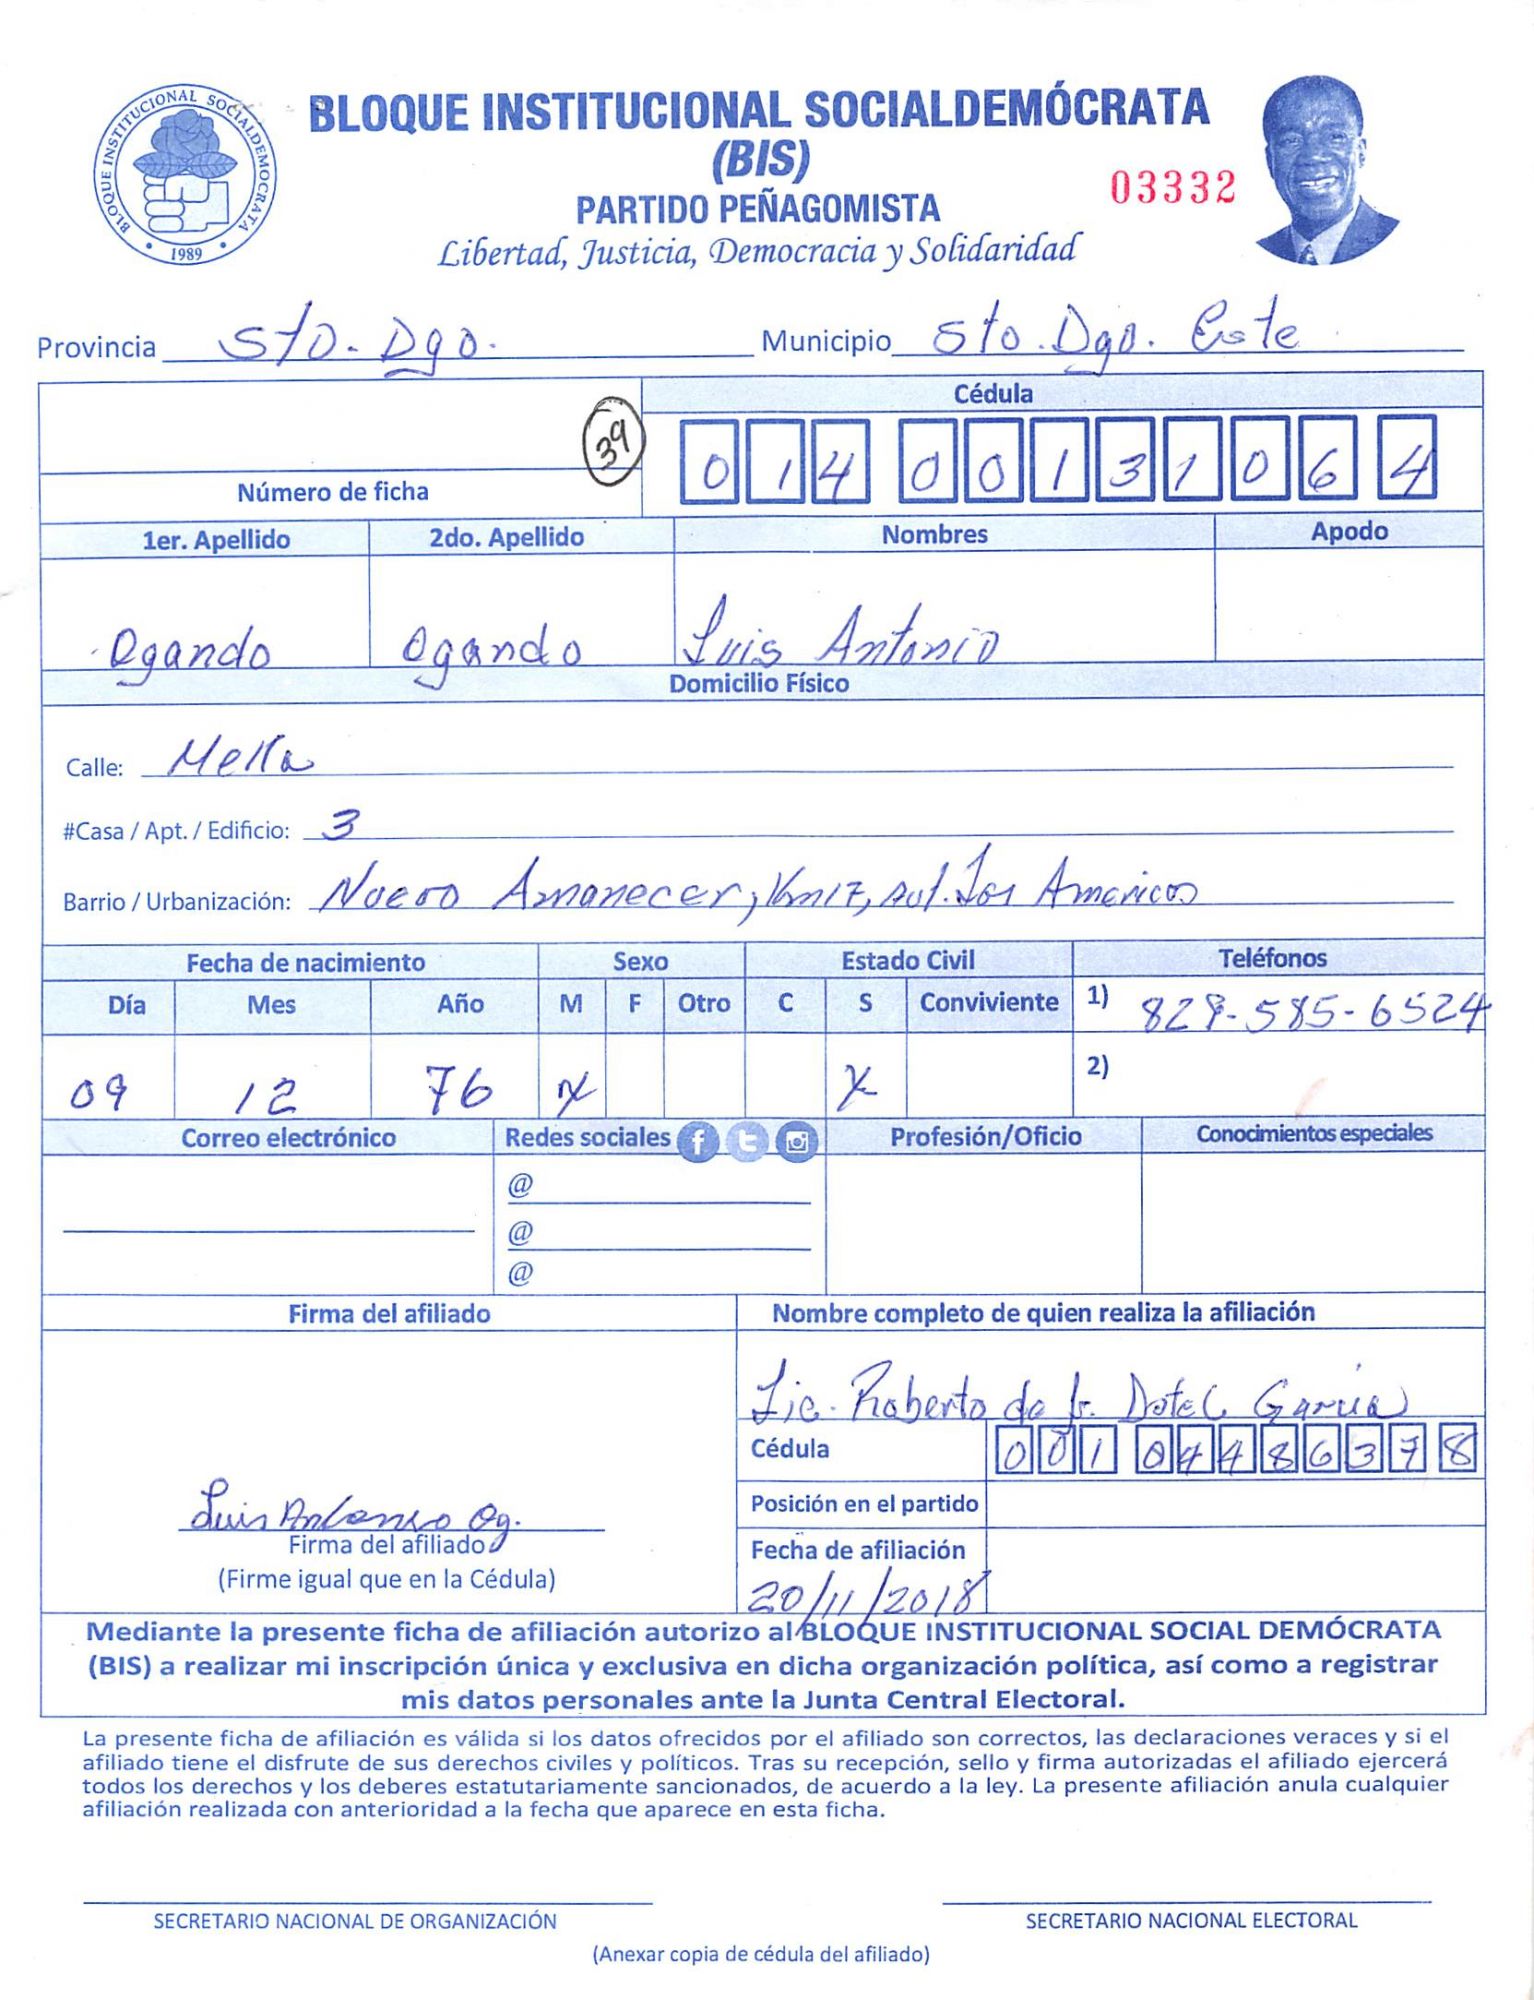 BLOQUE INSTITUCIONAL SOCIALDEMÓCRATA
(BIS)
PARTIDO PEÑAGOMISTA
Libertad, Justicia, Democracia y Solidaridad
03332
BLOQUE INSTITUCIONAL SOCIALDEMOCRATA
• 1989 •
Provincia Sto. Dgo. Municipio Sto. Dgo. Este
Cédula
39
0 1 4 0 0 1 3 1 0 6 4
Número de ficha
1er. Apellido 2do. Apellido Nombres Apodo
Ogando Ogando Luis Antonio
Domicilio Físico
Calle: Mella
#Casa / Apt. / Edificio: 3
Barrio / Urbanización: Nuevo Amanecer, Km17, Aut. Las Americas
Fecha de nacimiento Sexo Estado Civil Teléfonos
Día Mes Año M F Otro C S Conviviente 1) 829-585-6524
09 12 76 X X 2)
Correo electrónico Redes sociales Profesión/Oficio Conocimientos especiales
@
@
@
Firma del afiliado Nombre completo de quien realiza la afiliación
Lic. Roberto de Js. Dotel García
Cédula 0 0 1 0 4 4 8 6 3 7 8
Posición en el partido
Luis Antonio Og.
Firma del afiliado
(Firme igual que en la Cédula)
Fecha de afiliación
20/11/2018
Mediante la presente ficha de afiliación autorizo al BLOQUE INSTITUCIONAL SOCIAL DEMÓCRATA
(BIS) a realizar mi inscripción única y exclusiva en dicha organización política, así como a registrar
mis datos personales ante la Junta Central Electoral.
La presente ficha de afiliación es válida si los datos ofrecidos por el afiliado son correctos, las declaraciones veraces y si el
afiliado tiene el disfrute de sus derechos civiles y políticos. Tras su recepción, sello y firma autorizadas el afiliado ejercerá
todos los derechos y los deberes estatutariamente sancionados, de acuerdo a la ley. La presente afiliación anula cualquier
afiliación realizada con anterioridad a la fecha que aparece en esta ficha.
SECRETARIO NACIONAL DE ORGANIZACIÓN SECRETARIO NACIONAL ELECTORAL
(Anexar copia de cédula del afiliado)